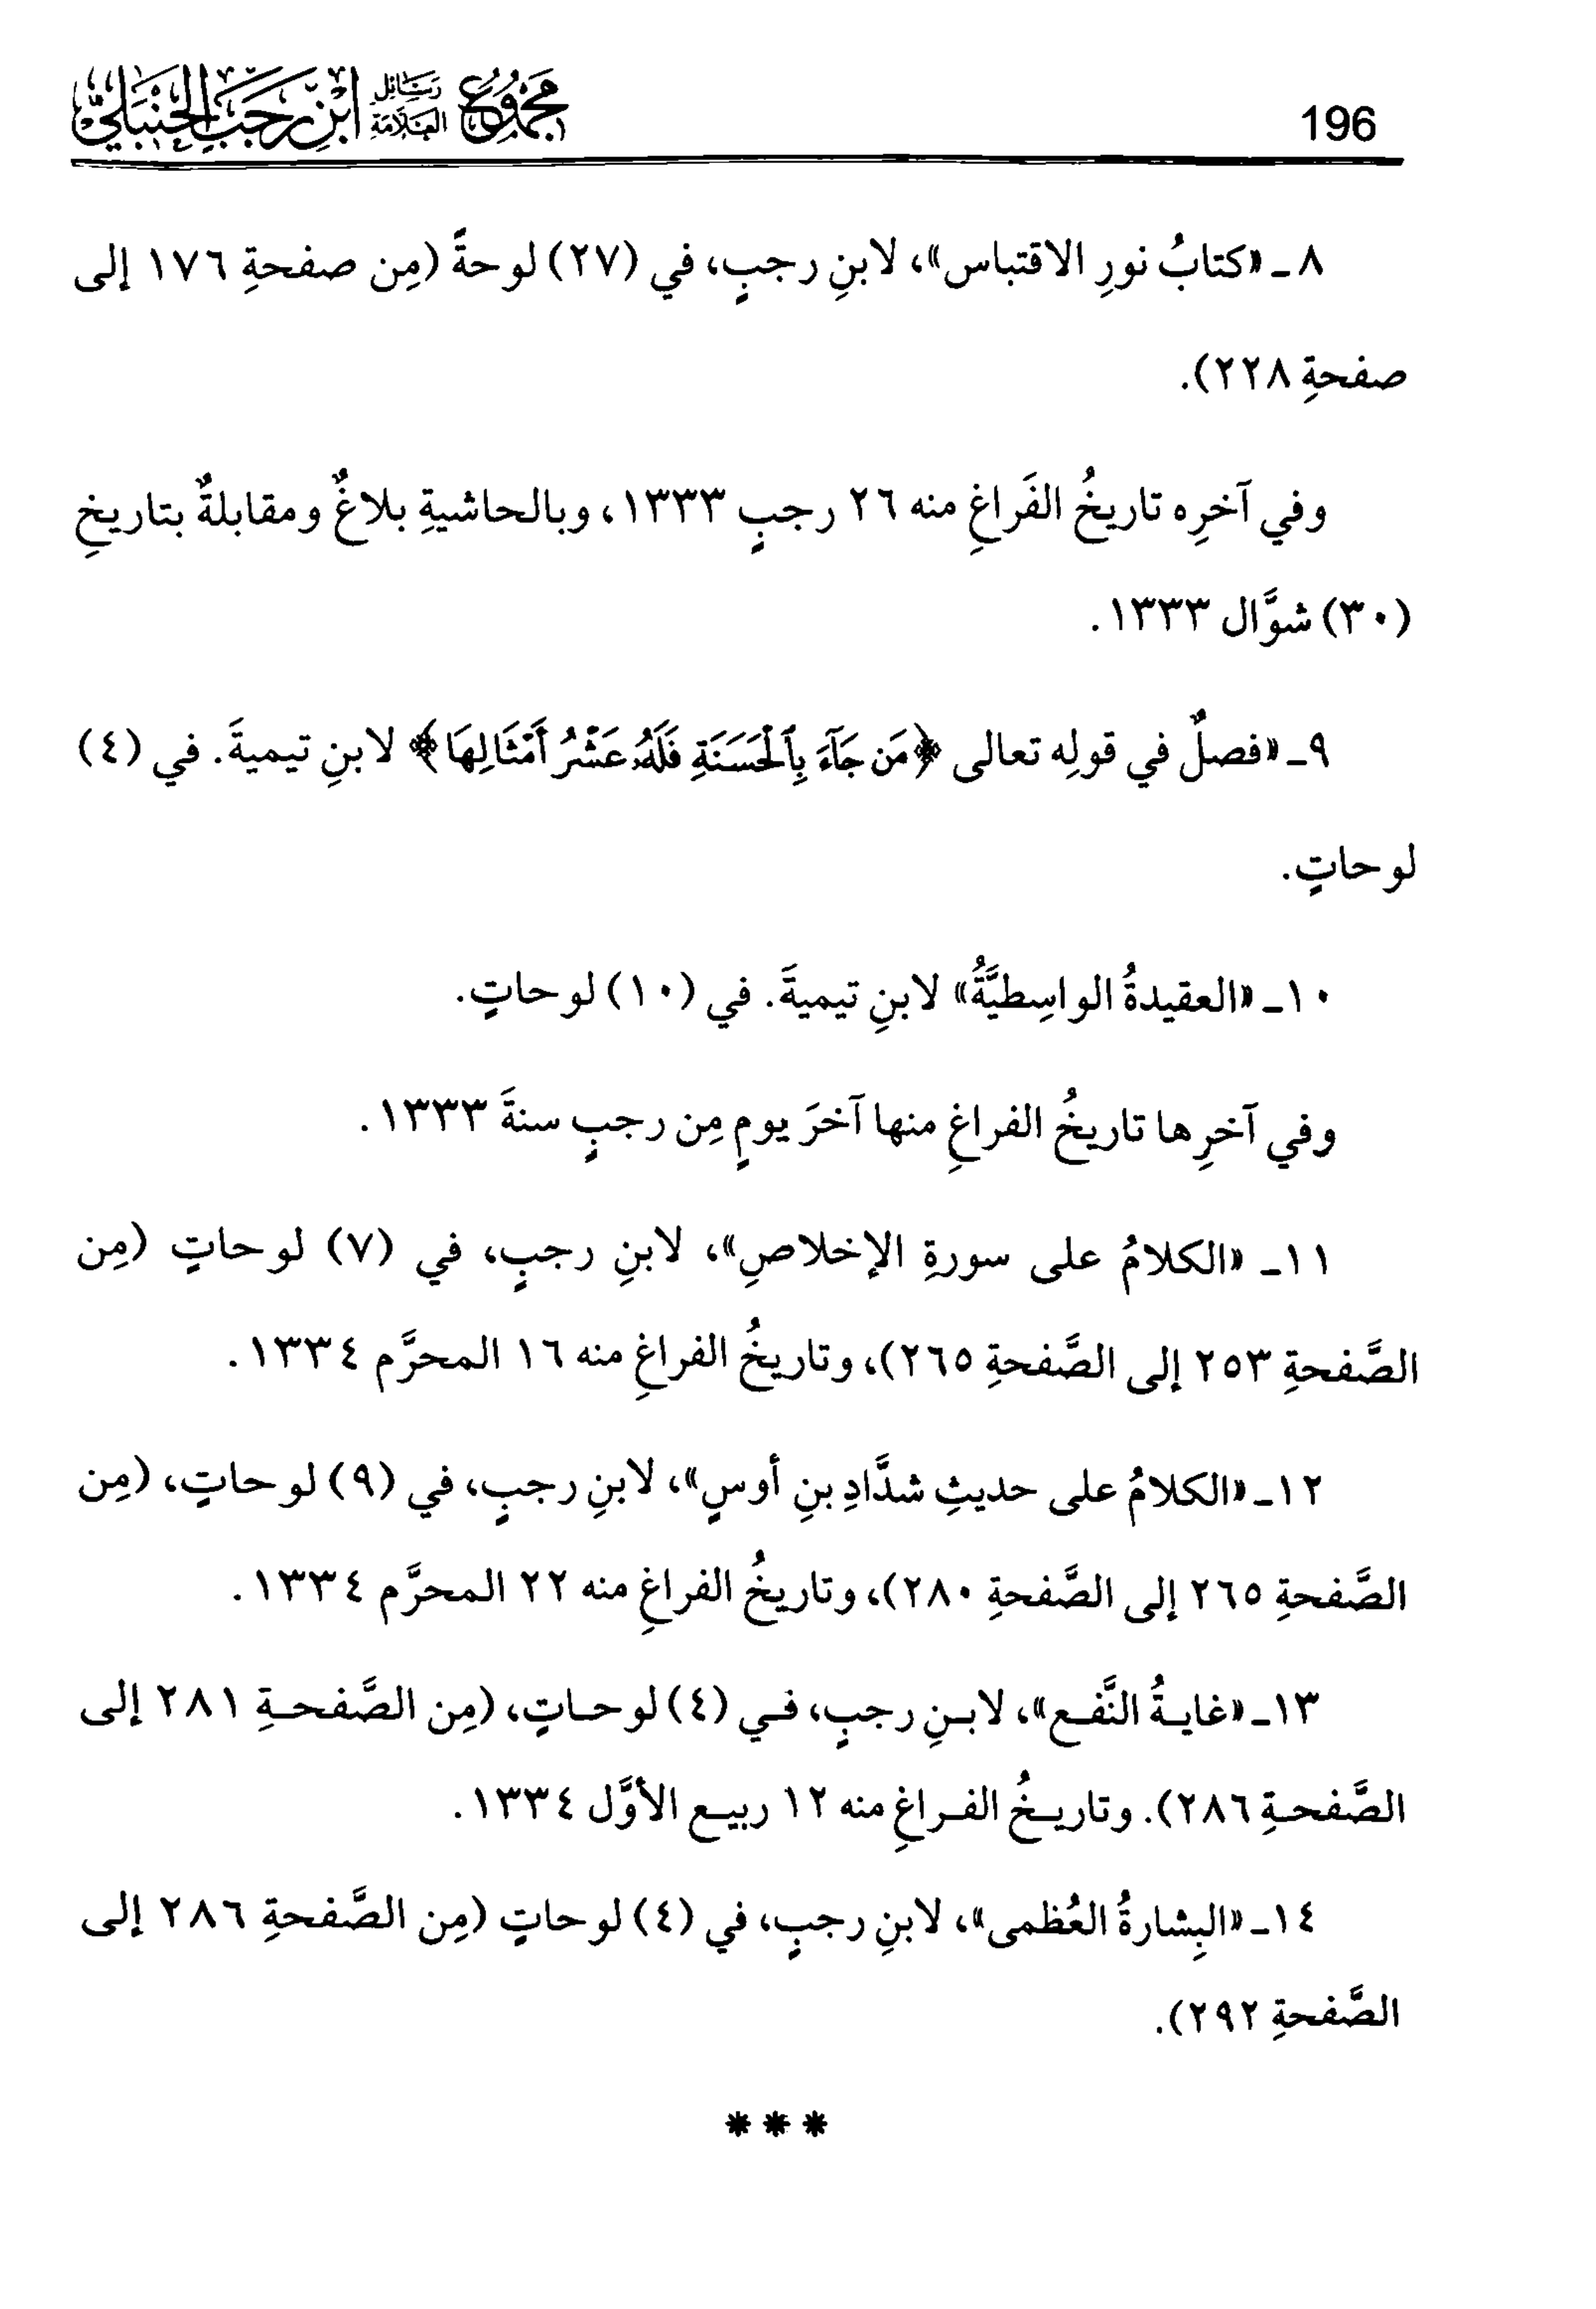 196
مجموع رسائل العلامة ابن رجب الحنبلي
٨ ـ «كتابُ نورِ الاقتباس»، لابنِ رجبٍ، في (٢٧) لوحةً (مِن صفحةِ ١٧٦ إلى
صفحةِ ٢٢٨).
وفي آخرِه تاريخُ الفَراغِ منه ٢٦ رجبٍ ١٣٣٣، وبالحاشيةِ بلاغٌ ومقابلةٌ بتاريخِ
(٣٠) شوَّال ١٣٣٣.
٩ـ «فصلٌ في قولِه تعالى ﴿مَن جَآءَ بِٱلْحَسَنَةِ فَلَهُۥ عَشْرُ أَمْثَالِهَا﴾ لابنِ تيميةَ. في (٤)
لوحاتٍ.
١٠ـ «العقيدةُ الواسِطيَّةُ» لابنِ تيميةَ. في (١٠) لوحاتٍ.
وفي آخرِها تاريخُ الفراغِ منها آخرَ يومٍ مِن رجبٍ سنةَ ١٣٣٣.
١١ـ «الكلامُ على سورةِ الإخلاصِ»، لابنِ رجبٍ، في (٧) لوحاتٍ (مِن
الصَّفحةِ ٢٥٣ إلى الصَّفحةِ ٢٦٥)، وتاريخُ الفراغِ منه ١٦ المحرَّم ١٣٣٤.
١٢ـ «الكلامُ على حديثِ شدَّادِ بنِ أوسٍ»، لابنِ رجبٍ، في (٩) لوحاتٍ، (مِن
الصَّفحةِ ٢٦٥ إلى الصَّفحةِ ٢٨٠)، وتاريخُ الفراغِ منه ٢٢ المحرَّم ١٣٣٤.
١٣ـ «غايـةُ النَّفـع»، لابـنِ رجبٍ، فـي (٤) لوحـاتٍ، (مِن الصَّفحـةِ ٢٨١ إلى
الصَّفحـةِ ٢٨٦). وتاريـخُ الفـراغِ منه ١٢ ربيـع الأوَّل ١٣٣٤.
١٤ـ «البِشارةُ العُظمى»، لابنِ رجبٍ، في (٤) لوحاتٍ (مِن الصَّفحةِ ٢٨٦ إلى
الصَّفحةِ ٢٩٢).
* * *